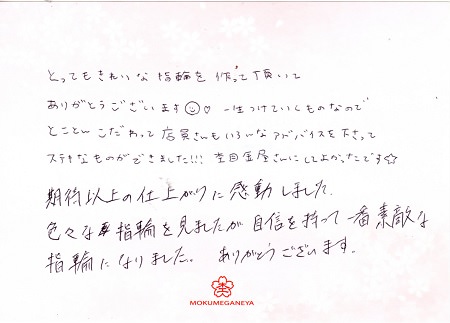 とってもきれいな指輪を作って頂いて
ありがとうございます☺♡ 一生つけていくものなので
とことんこだわって店員さんもいろいろなアドバイスを下さって
ステキなものができました!!! 杢目金屋さんにしてよかったです☆
期待以上の仕上がりに感動しました。
色々な指輪を見ましたが自信を持って一番素敵な
指輪になりました。 ありがとうございます。
MOKUMEGANEYA